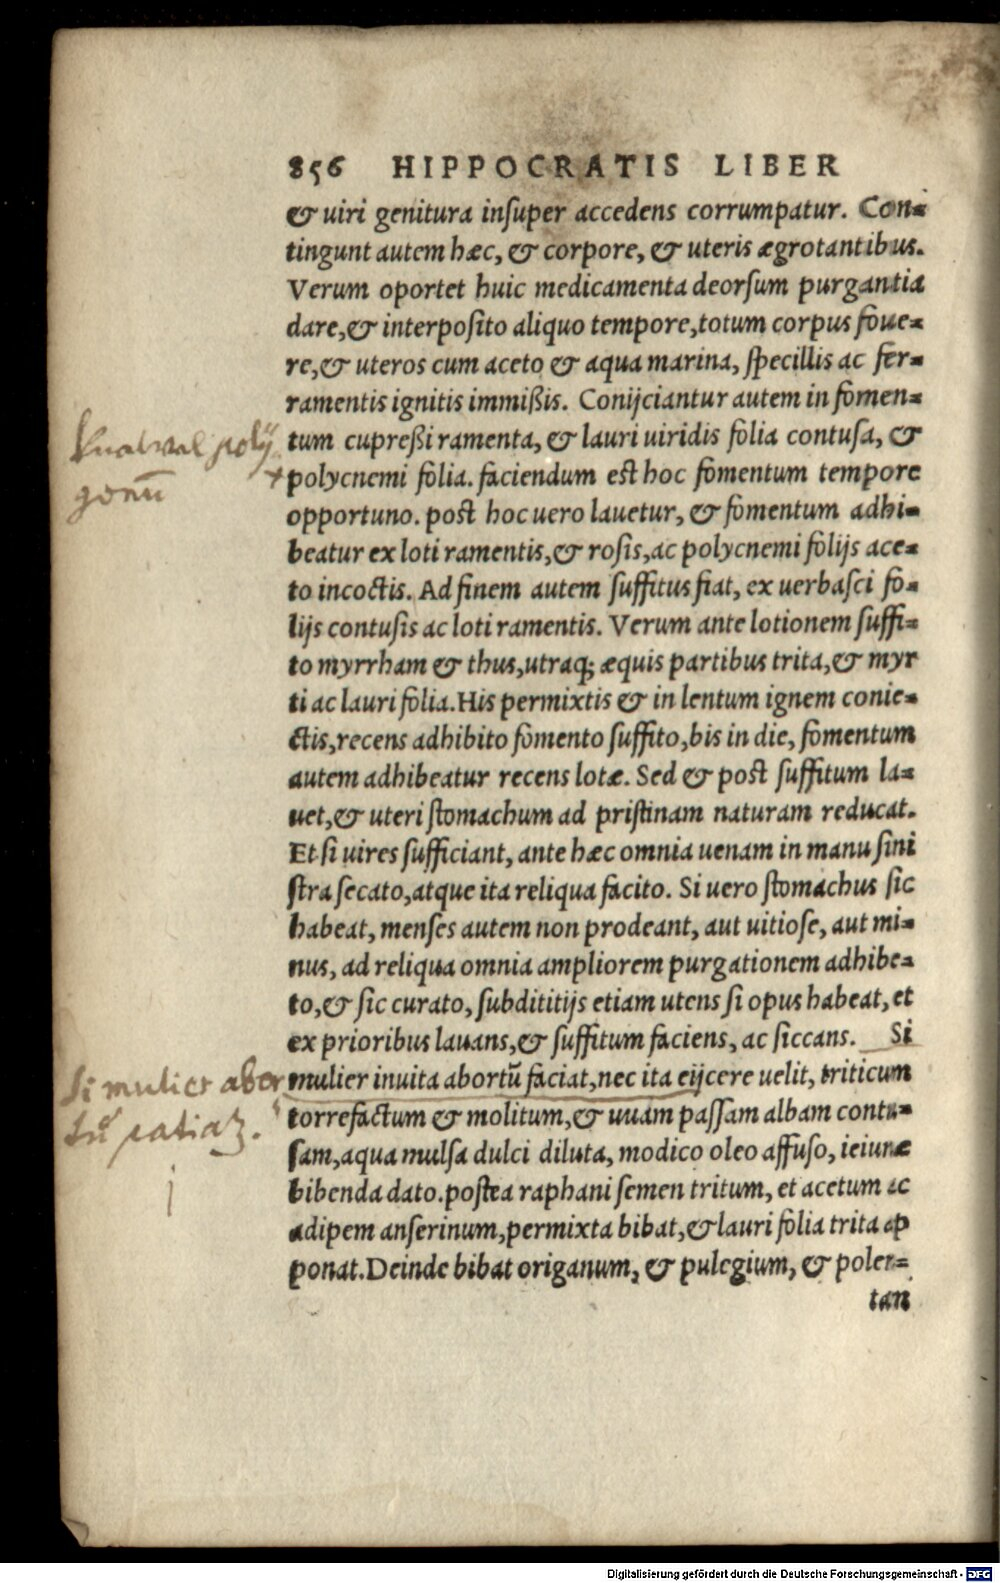 856 HIPPOCRATIS LIBER
& uiri genitura inſuper accedens corrumpatur. Con=
tingunt autem hæc, & corpore, & uteris ægrotantibus.
Verum oportet huic medicamenta deorſum purgantia
dare, & interpoſito aliquo tempore, totum corpus foue=
re, & uteros cum aceto & aqua marina, ſpecillis ac fer=
ramentis ignitis immißis. Conijciantur autem in fomen=
tum cupreßi ramenta, & lauri uiridis folia contuſa, &
polycnemi folia. faciendum eſt hoc fomentum tempore
opportuno. poſt hoc uero lauetur, & fomentum adhi=
beatur ex loti ramentis, & roſis, ac polycnemi folijs ace=
to incoctis. Ad finem autem ſuffitus fiat, ex uerbaſci fo=
lijs contuſis ac loti ramentis. Verum ante lotionem ſuffi=
to myrrham & thus, utraq; æquis partibus trita, & myr
ti ac lauri folia. His permixtis & in lentum ignem conie=
ctis, recens adhibito fomento ſuffito, bis in die, fomentum
autem adhibeatur recens lotæ. Sed & poſt ſuffitum la=
uet, & uteri ſtomachum ad priſtinam naturam reducat.
Et ſi uires ſufficiant, ante hæc omnia uenam in manu ſini
ſtra ſecato, atque ita reliqua facito. Si uero ſtomachus ſic
habeat, menſes autem non prodeant, aut uitioſe, aut mi=
nus, ad reliqua omnia ampliorem purgationem adhibe=
to, & ſic curato, ſubdititijs etiam utens ſi opus habeat, et
ex prioribus lauans, & ſuffitum faciens, ac ſiccans. Si
mulier inuita abortũ faciat, nec ita eijcere uelit, triticum
torrefactum & molitum, & uuam paſſam albam contu=
ſam, aqua mulſa dulci diluta, modico oleo affuſo, ieiunæ
bibenda dato. poſtea raphani ſemen tritum, et acetum ac
adipem anſerinum, permixta bibat, & lauri folia trita ap
ponat. Deinde bibat origanum, & pulegium, & polen=
tan
polij
gonũ
Si mulier abor
tũ
Digitalisierung gefördert durch die Deutsche Forschungsgemeinschaft - DFG